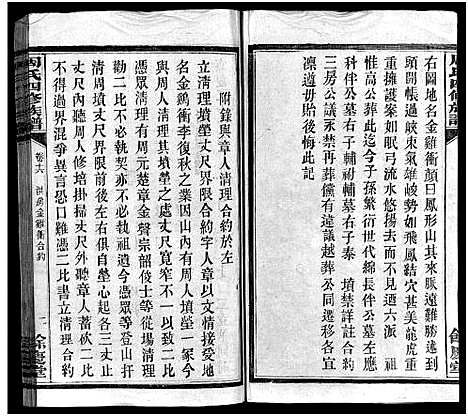 周氏四修族譜
右圖地名金雞衝顏曰鳳形山其來脈逶迤右到
頭開帳過峽束氣雄岐勢如飛鳳結穴甚美龍虎重
重擁護案如眠弓流水悠揚去而不見迺六派 祖
惟高公葬此迄今子孫繁衍世代綿長伴公墓左應
科伴公墓右子輔初輔墓右子泰 墳禁詳註合約
三房公議永禁再葬儻有違議越葬公同遷移各宜
凜遵毋貽後悔此記
附錄與章人清理合約於左
立清理墳塋丈尺界限合約字人章文憑情接受地
名金雞衝李復秋之業因山內有周人墳塋一冢今
與周人清理其墳塋之處丈尺寬窄不一以致二比
憑眾清理有周之元楚章金聲宗韶俊士等從場清理
勸二比不必執祖遺今憑眾等登山扞
立不得契內清丈尺界限前後左右俱自塋心起各三丈
丈尺周人修培掛掃丈尺外聽章人蓄砍二比
不得過界混爭異言恐口難憑二比書立清理合約
周氏四修族譜
卷十六
金雞衝合約
二
餘慶堂
餘慶堂